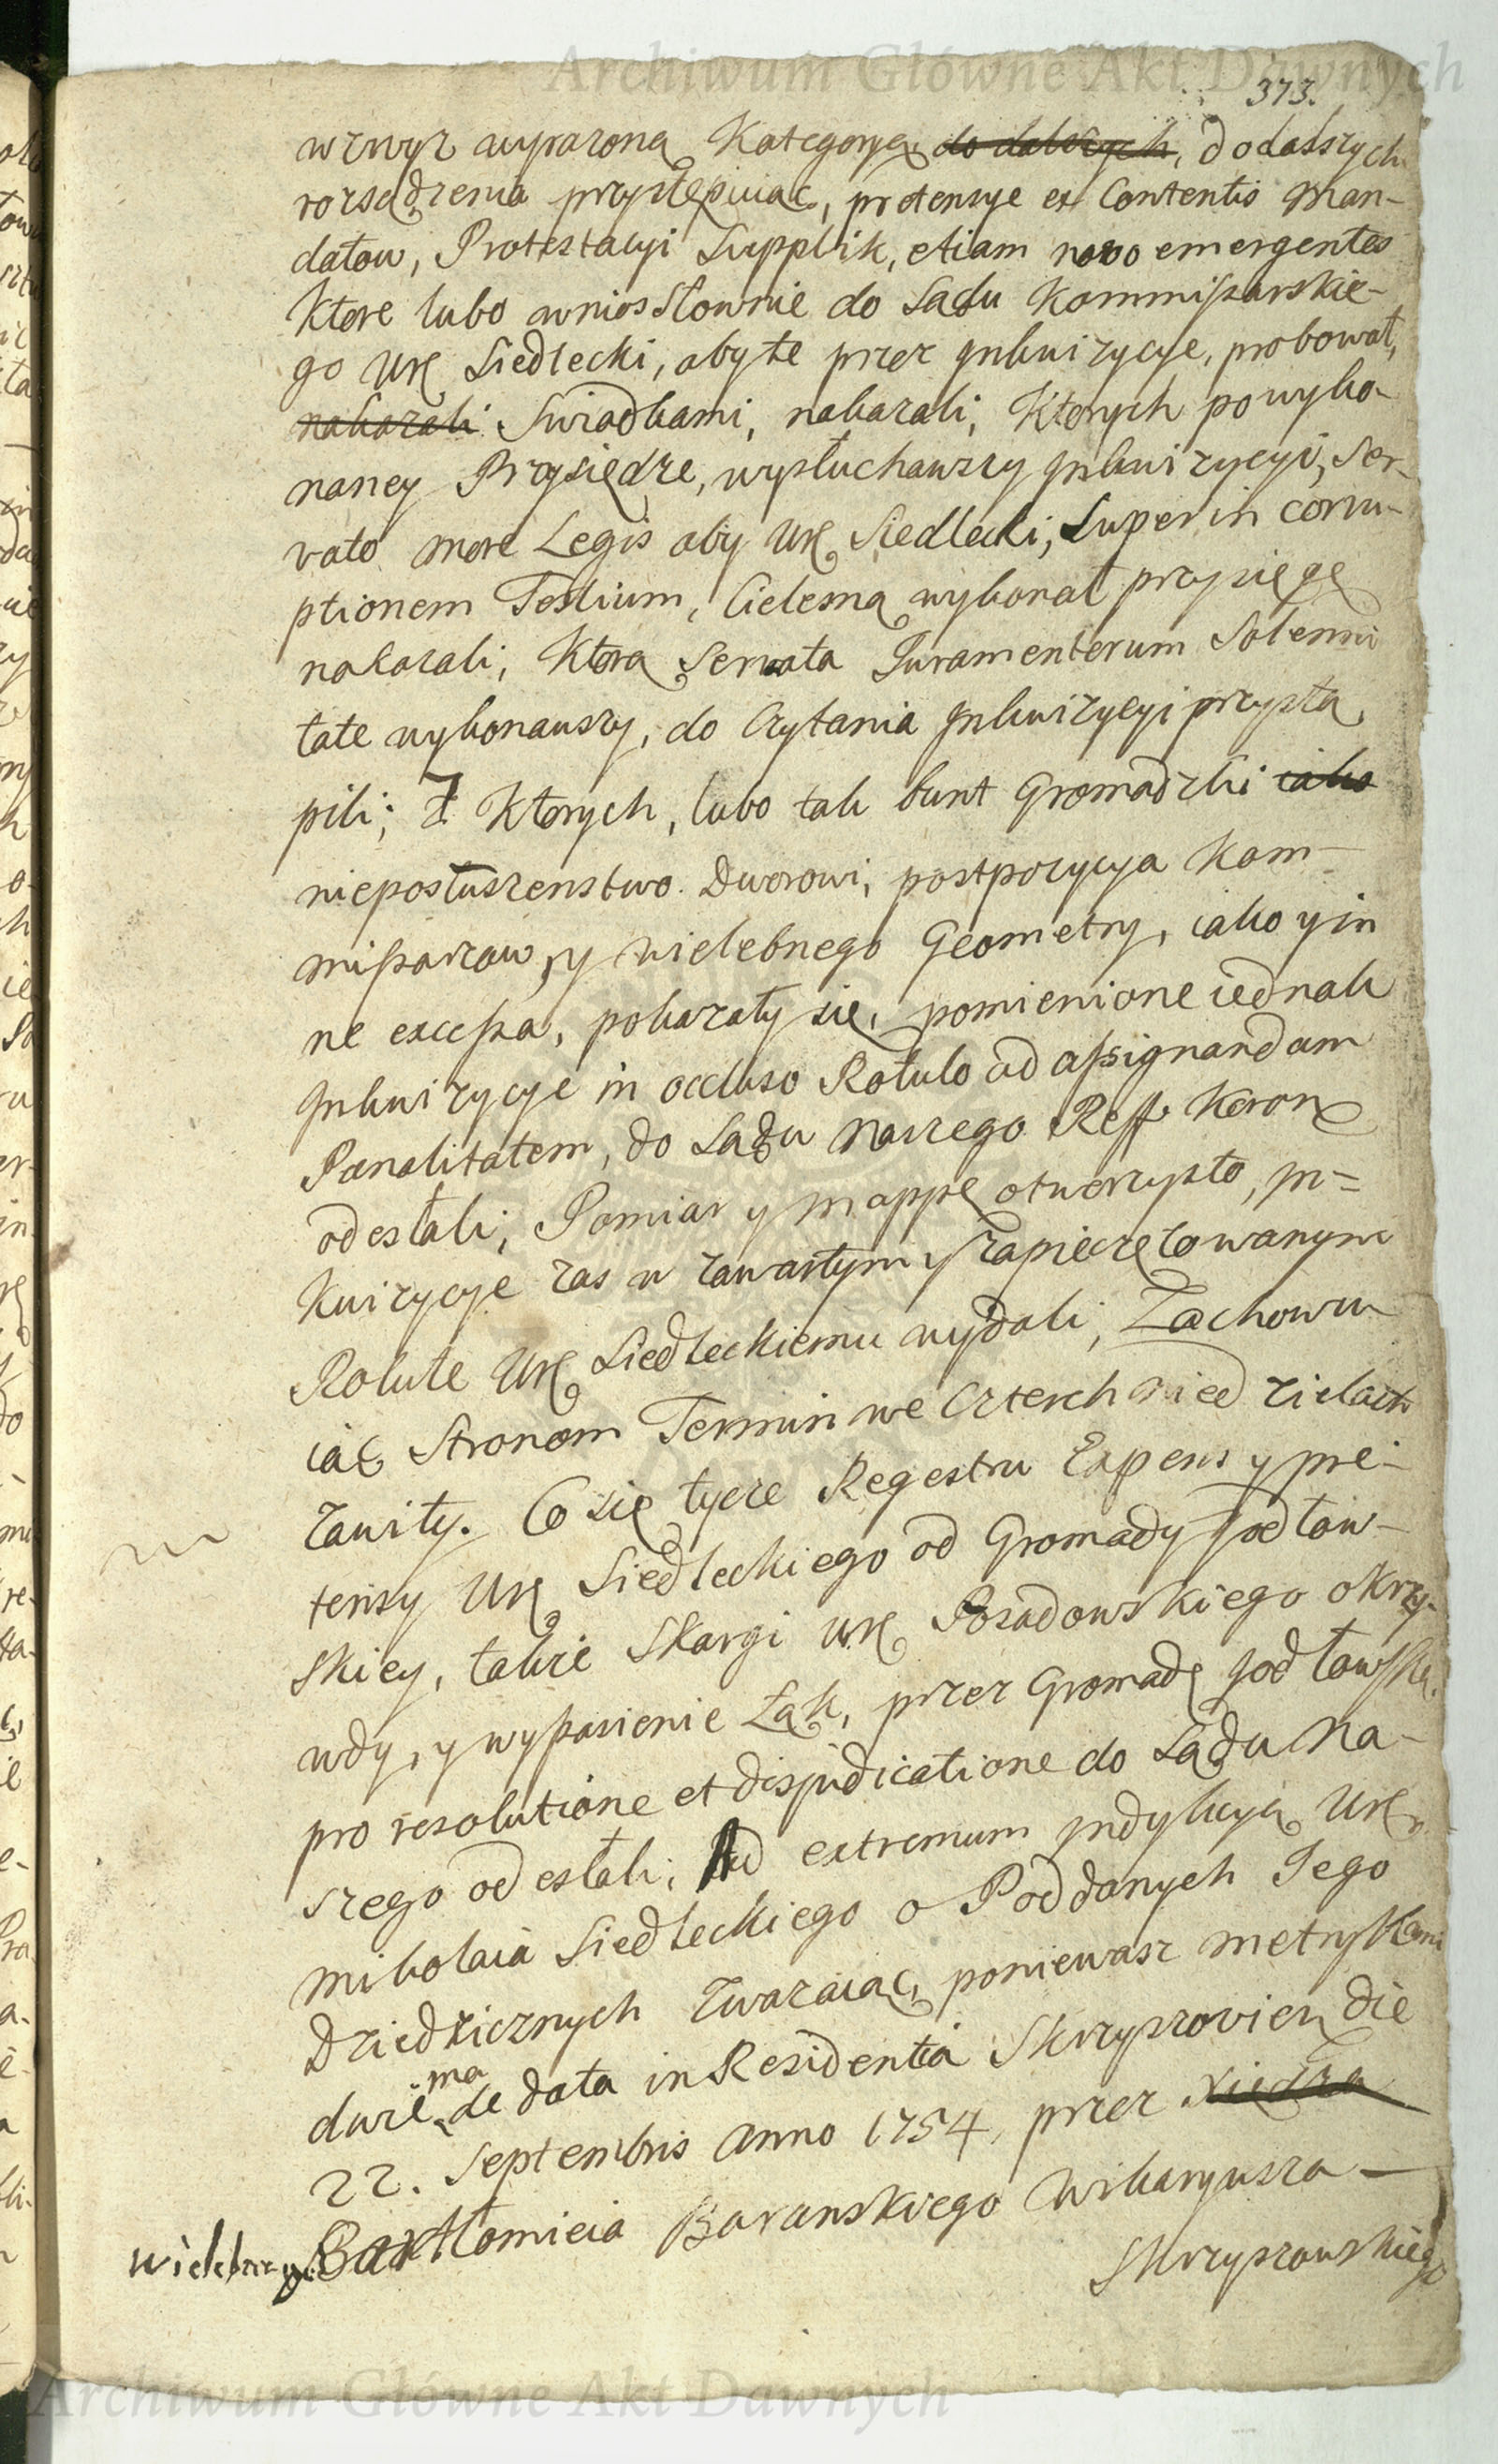 Archiwum Główne Akt Dawnych
373.
wzwyz wyrazoną Kategoryą do dalszych, do dalszych
rozsądzenia przystępuiąc, pretensye ex Contentis Man-
datow, Protestacyi Supplik, etiam novo emergentes
Ktore lubo wniosł Słownie do Sądu Kommissarskie-
go Ur. Siedlecki, aby te przez Jnkwizycye, probował,
nakazali Swiadkami, nakazali, Ktorych po wyko-
naney Przysiędze, wysłuchawszy Jnkwizycyi, Ser-
vato more Legis aby Ur. Siedlecki, Super in corru-
ptionem Testium, Cielesną wykonał przysięgę
nakazali; Ktorą Servata Juramentorum Solenni
tate wykonawszy, do Czytania Jnkwizycyi przystą
pili; Z Ktorych, lubo tak bunt Gromadzki iako
nieposłuszenstwo Dworowi, postpozycya Kom-
missarzow, y Wielebnego Geometry, iako y in
ne excessa, pokazały się, pomienione iednak
Jnkwizycye in occluso Rotulo ad assignandam
Pænalitatem, do Sądu Naszego Reff. Koron
odesłali; Pomiar y Mappę otworzysto, Jn=
kwizycye zas w zawartym y zapieczętowanym
Rotule Ur. Siedleckiemu wydali, Zachowu
iąc Stronom Termin we Czterech Niedzielach
zawity. Co się tycze Regestru Expens y pre-
tensy Ur. Siedleckiego od Gromady Godłow-
skiey, takze Skargi Ur. Posadowskiego o krzy-
wdy, y wypasienie Łąk, przez Gromadę Godłowską
pro resolutione et disjudicatione do Sądu Na-
szego odesłali; Ad extremum Jndykcyą Ur.
Mikołaia Siedleckiego o Poddanych Jego
Dziedzicznych zwazaiąc, poniewasz metrykami
dwiema de data in Residentia Skrzyszovien die
22. Septembris Anno 1754, przez Xiędza
Wielebnego Bartłomieia Baranskiego Wikaryusza
Skrzyszowskiego
Archiwum Główne Akt Dawnych